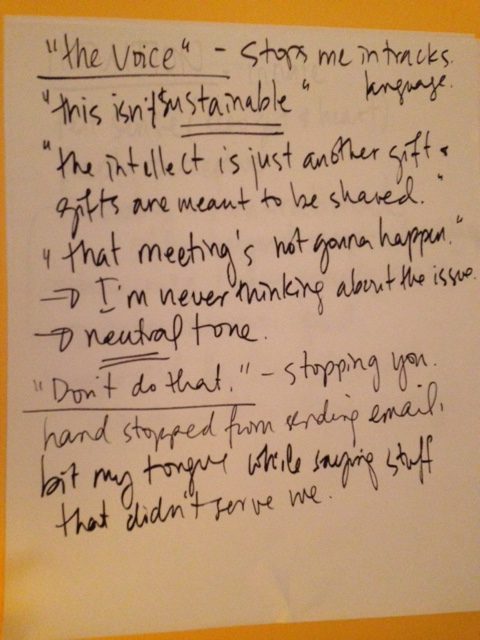 "the voice" - stops me in tracks.
language.
"this isn't sustainable"
"the intellect is just another gift &
gifts are meant to be shared."
"that meeting's not gonna happen."
→ I'm never thinking about the issue.
→ neutral tone.
"Don't do that." - stopping you.
hand stopped from sending email,
bit my tongue while saying stuff
that didn't serve me.